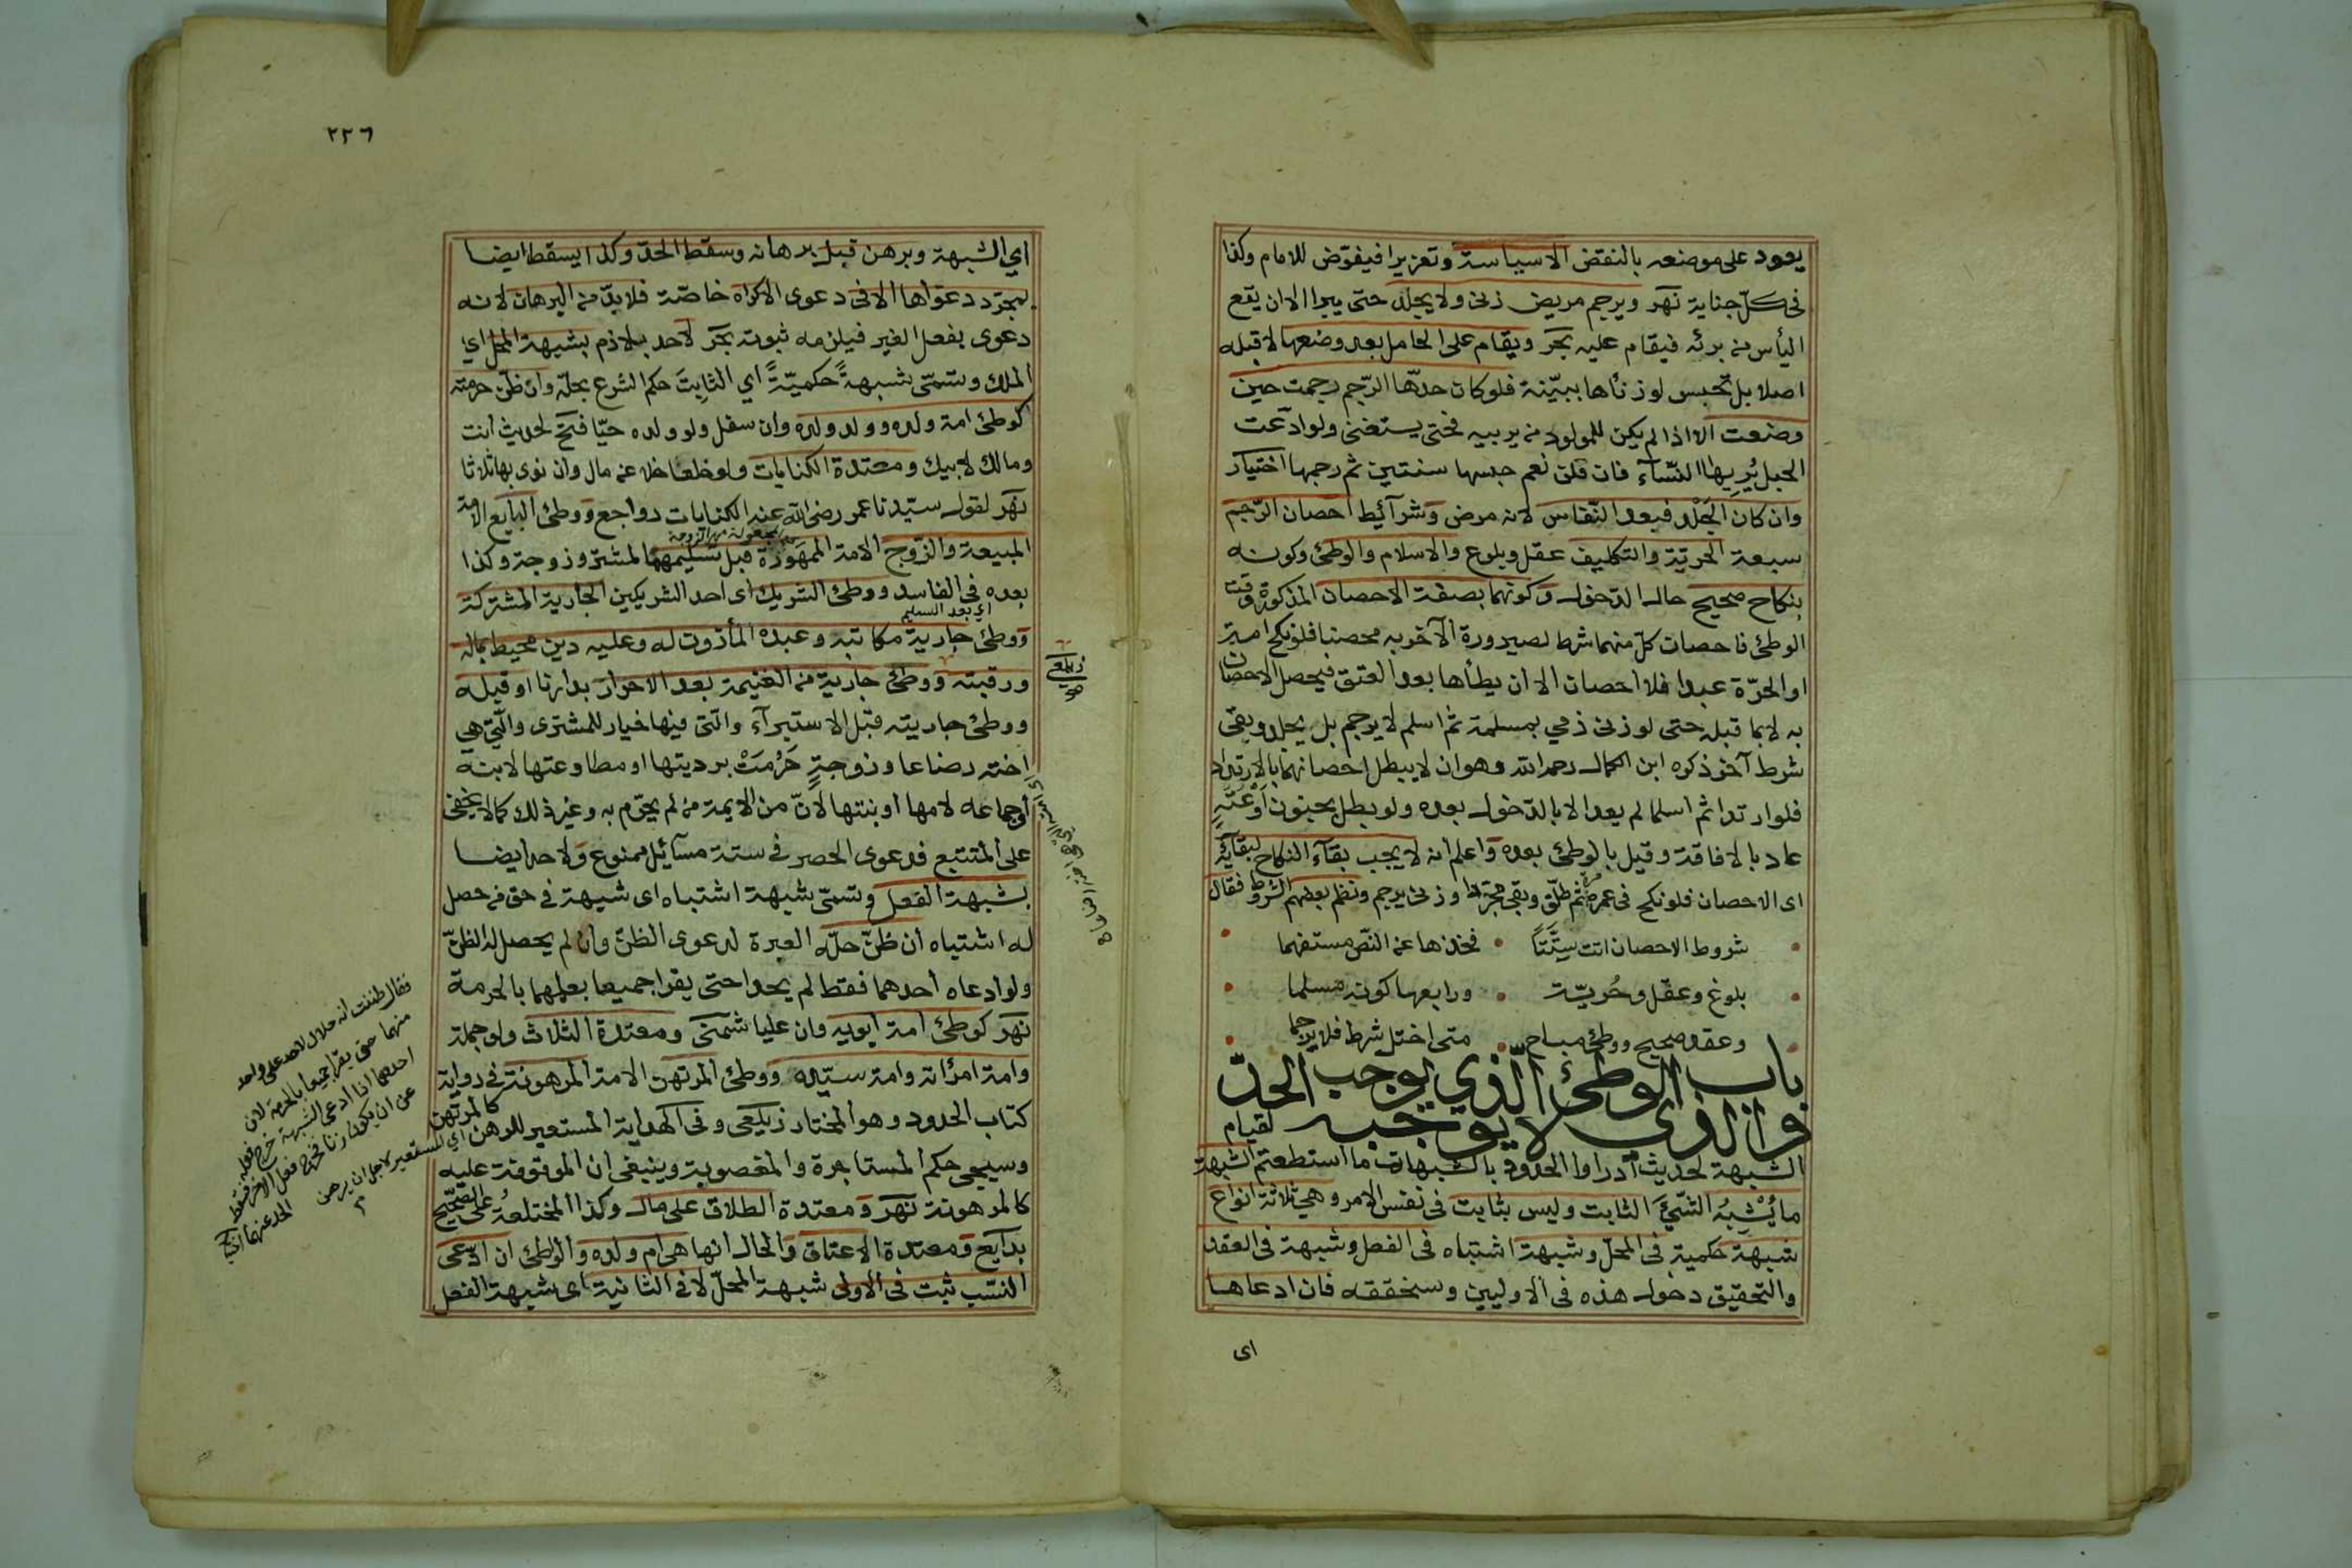 يعود على موضعه بالنقض الا سياسة وتعزيرا فيفوّض للامام وكذا
فى كلّ جناية نهر ويرجم مريض زنى ولا يجلد حتى يبرا الا ان يقع
اليأس من برئه فيقام عليه بحر ويقام على الحامل بعد وضعها لا قبله
اصلا بل تحبس لو زناها ببيّنة فلو كان حدّها الرّجم رجمت حين
وضعت الا اذا لم يكن للمولود من يربيه فحتى يستغنى ولو ادّعت
الحبل يُريها النّسآء فان قلن نعم حبسها سنتين ثم رجمها اختيار
وان كان الجَلْد فبعد النّفاس لانه مرض وشرآئط احصان الرّجم
سبعة الحريّة والتكليف عقل وبلوغ والاسلام والوطئ وكونه
بنكاح صحيح حال الدّخول وكونهما بصفة الاحصان المذكورة وقت
الوطئ فاحصان كلّ منهما شرط لصيرورة الآخر به محصنا فلو نكح امة
او الحرّة عبدا فلا احصان الا ان يطأها بعد العتق فيحصل الاحصان
به لا بما قبله حتى لو زنى ذمي بمسلمة ثم اسلم لا يرجم بل يجلد وبقى
شرط آخر ذكره ابن الكمال رحمه الله وهو ان لا يبطل احصانهما بالارتداد
فلو ارتدا ثم اسلما لم يعد الا بالدّخول بعده ولو بطل بجنون اَوْ عَتَهٍ
عاد بالافاقة وقيل بالوطئ بعده واعلم انه لا يجب بقآء النكاح لبقآئه
اى الاحصان فلو نكح فى عمره مرة ثم طلّق وبقى مجرّدا وزنى يرجم ونظم بعضهم الشروط فقال
شروط الاحصان اتت ستّةً • فخذها عن النّص مستفهما
بلوغ وعقل وحُريّة • ورابعها كونه مسلما
وعقد صحيح ووطئ مباح • متى اختل شرط فلا يرجما
باب الوطئ الّذي يوجب الحدّ
والذي لا يوجبه لقيام
الشبهة لحديث ادراوا الحدود بالشبهات ما استطعتم الشبهة
ما يُشْبِهُ الشّيءَ الثابت وليس بثابت فى نفس الامر وهي ثلاثة انواع
شبهة حكمية فى المحلّ وشبهة اشتباه فى الفعل وشبهة فى العقد
والتحقيق دخول هذه فى الاوليين وسنحققه فان ادعاها
اى
٢٢٦
اي الشبهة وبرهن قبل برهانه وسقط الحدّ وكذا يسقط ايضا
بمجرّد دعواها الا فى دعوى الاكراه خاصّة فلا بدّ من البرهان لانه
دعوى بفعل الغير فيلزمه ثبوته بحر لا حد بلازم بشبهة المحل اي
الملك وتسمّى شبهةً حكميّةً اي الثابِتَ حكم الشرع بحلّه وان ظنّ حرمته
كوطئ امة ولده وولد ولده وان سفل ولو ولده حيّا فتح لحديث انت
ومالك لابيك ومعتدة الكنايات ولو خلعا خلا عن مال وان نوى بها ثلاثا
نهر لقول سيّدنا عمر رضى الله عنه الكنايات رواجع ووطئ البايع الامة
المبيعة والزّوج الامة الممهَورة قبل تسليمهما لمشتر وزوجة وكذا
المجعولة مهرا لزوجة
بعده فى الفاسد ووطئ الشريك اى احد الشريكين الجارية المشتركة
اى بعد التسليم
ووطئ جارية مكاتبه وعبده المأذون له وعليه دين محيط بماله
ورقبته ووطئ جارية من الغنيمة بعد الاحراز بدارنا او قبله
زيلعي
ووطئ جاريته قبل الاستبرآء والّتى فيها خيار للمشترى والّتى هي
اخته رضاعا وزوجةٍ حَرُمَتْ بردّتها او مطاوعتها لابنه
او جماعه لامها او بنتها لانّ من الايمة من لم يحرّم به وغير ذلك كما لا يخفى
على المتتبع فدعوى الحصر فى ستة مسآئل ممنوع ولا حد ايضا
بشبهة الفعل وتسمّى شبهة اشتباه اى شبهة فى حق من حصل
له اشتباه ان ظنّ حلّه العبرة لدعوى الظنّ وان لم يحصل له الظنّ
ولو ادعاه أحدهما فقط لم يحدا حتى يقرا جميعا بعلمهما بالحرمة
نهر كوطئ امة ابويه وان عليا شمنى ومعتدة الثلاث ولو جملة
وامة امرأته وامة سيّده ووطئ المرتهن الامة المرهونة فى رواية
كتاب الحدود وهو المختار زيلعى وفى الهداية المستعير للرهن كالمرتهن
اي المستعير لاجل ان يرهن
وسيجى حكم المستاجرة والمغصوبة وينبغى ان الموقوفة عليه
كالمرهونة نهر ومعتدة الطلاق على مال وكذا المختلعة على الصّحيح
بدايع ومعتدة الاعتاق والحال انها هى ام ولده والوطئ ان ادّعى
النسَب ثبت فى الاولى شبهة المحلّ لا فى الثانية اى شبهة الفعل
فقال ظننت انه حلال لا حد على واحد
منهما حتى يقرا جميعا بالحرمة لان
احدهما اذا ادعى الشبهة خرج فعله
عن ان يكون زنا فخرج فعل الاخر فسقط
الحد عنهما